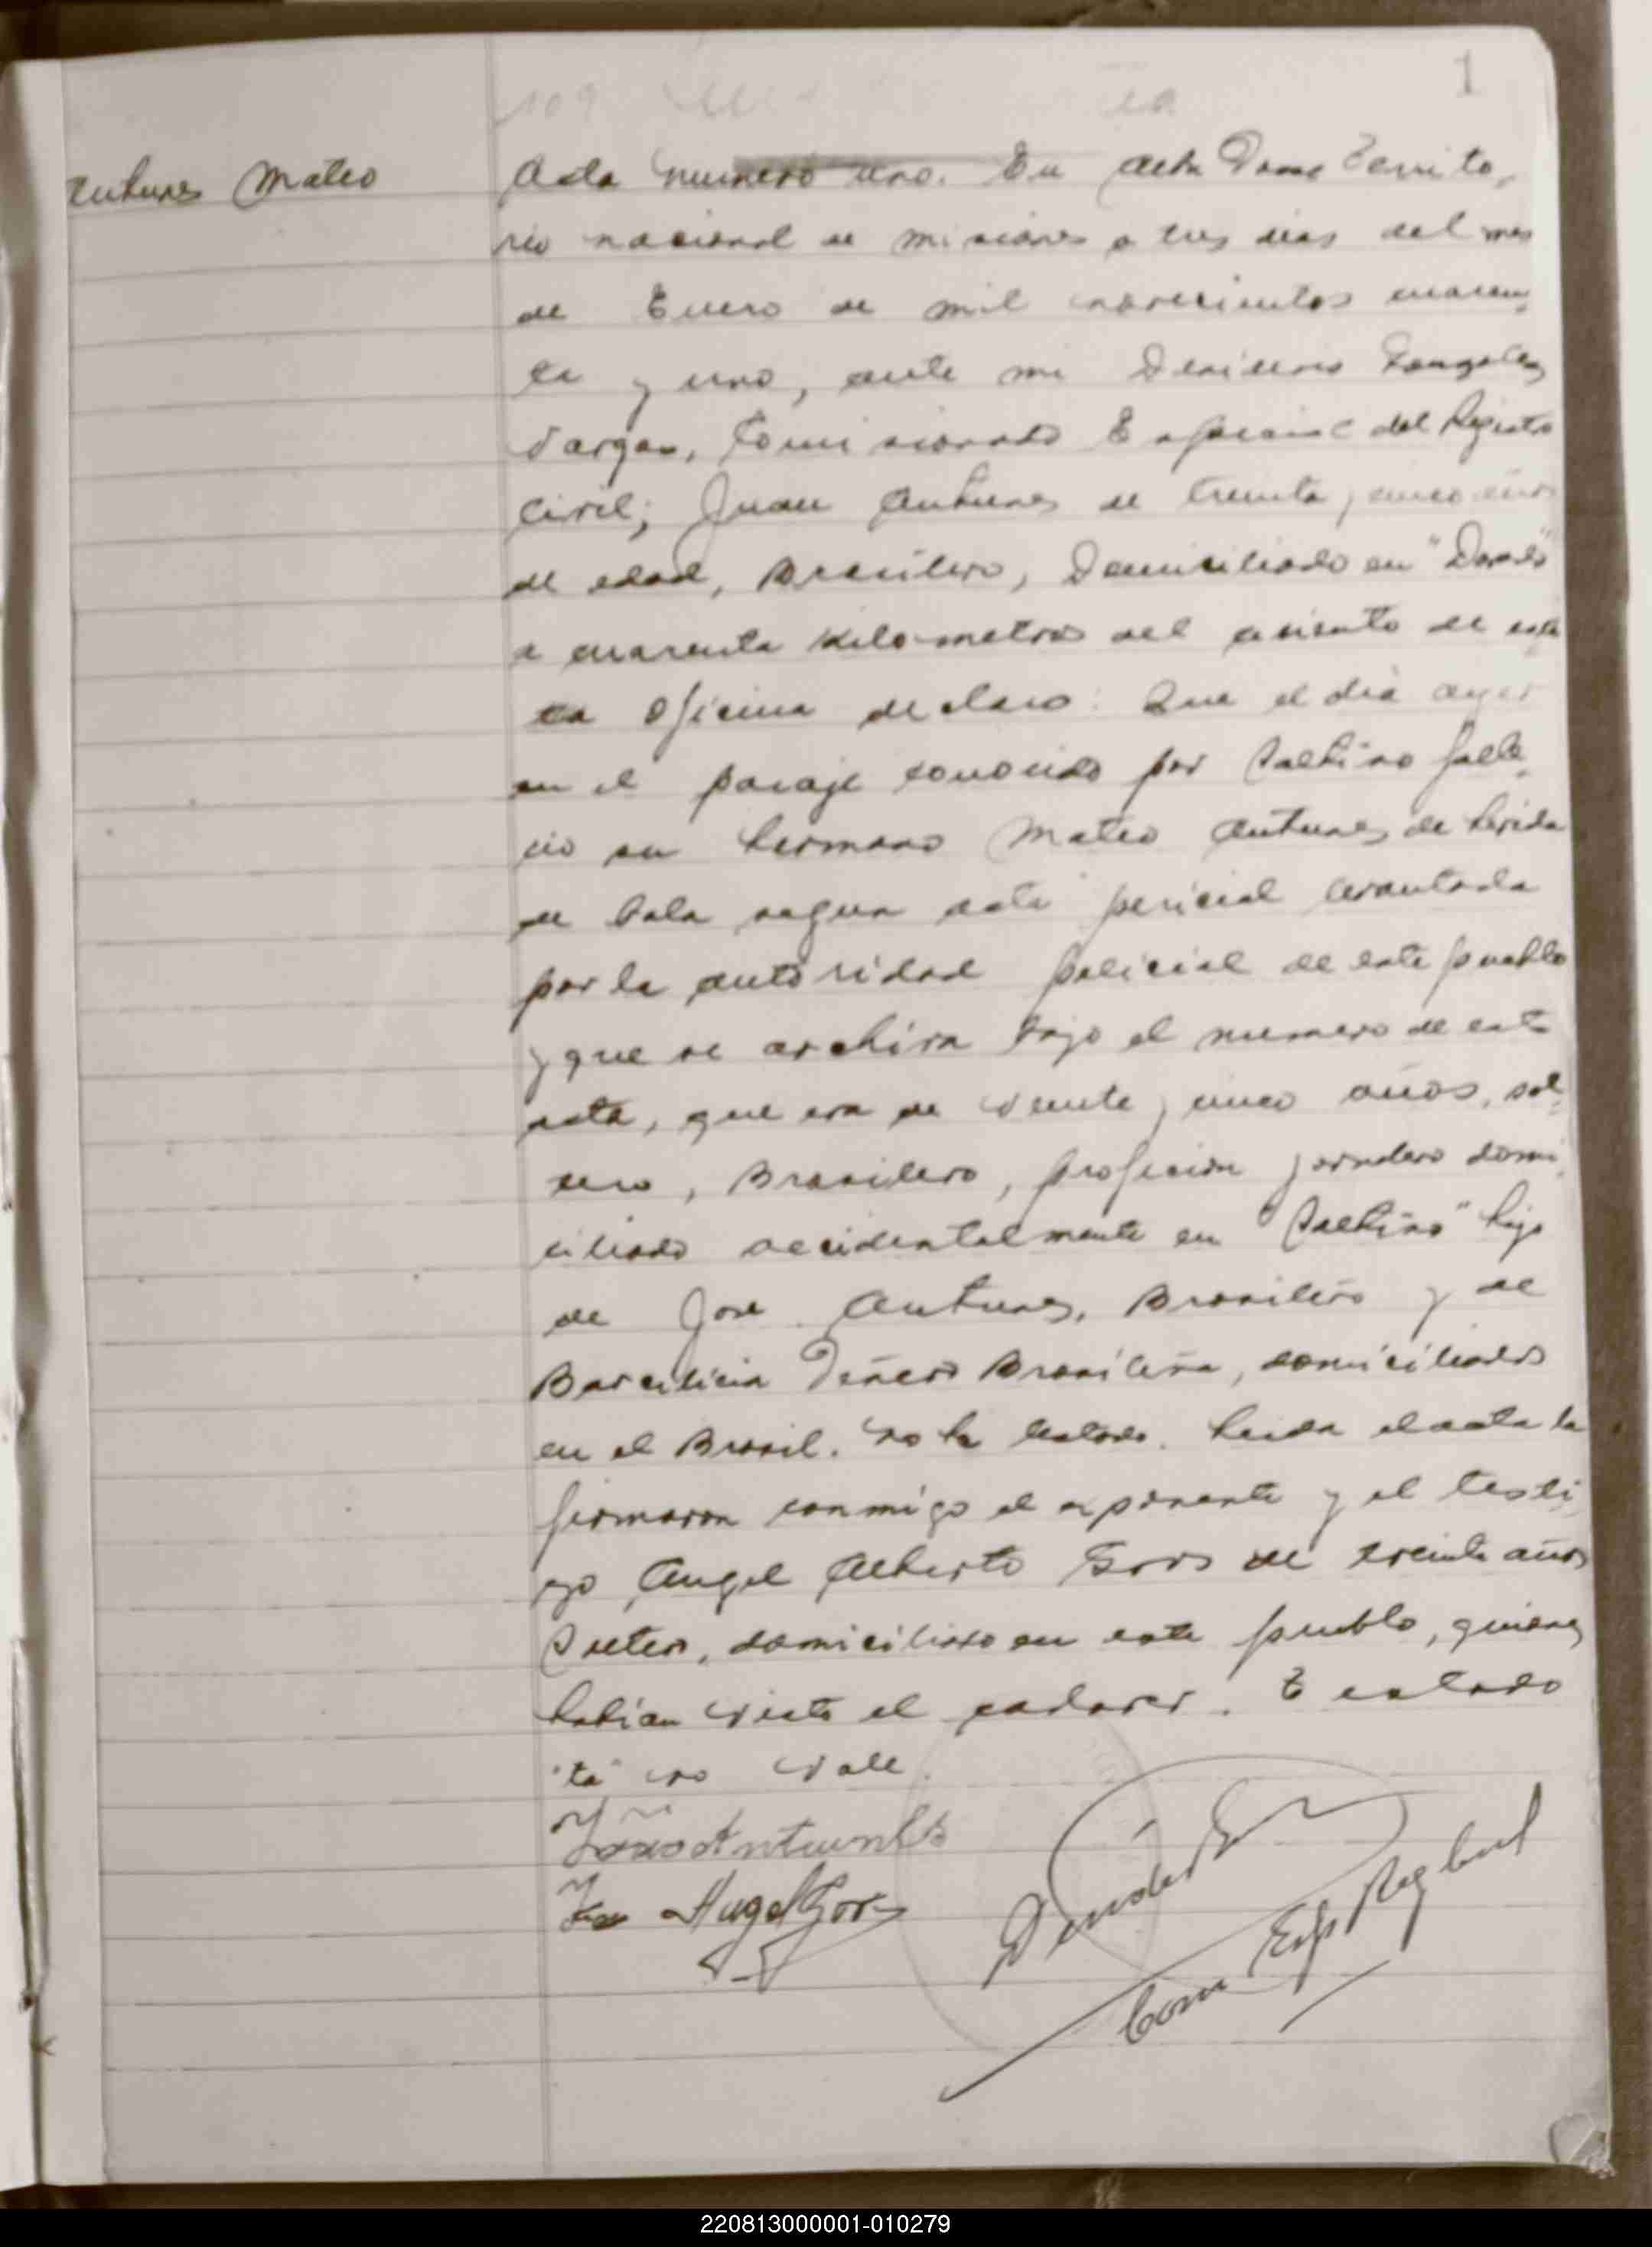 1
Antunes Mateo
Acta numero uno. En
rio nacional de Misiones a tres dias del mes
de Enero de mil novecientos cuaren
ta y uno, ante mi Gonzalez
Vargas, Comisionado Especial del Registro
Civil; Juan Antunes de treinta y cinco años
de edad, Brasilero, Domiciliado en
a cuarenta kilometros del asiento de esta
ta oficina declaro: Que el dia ayer
en el paraje conocido por falle
cio su hermano Mateo Antunes de herida
de bala segun acta pericial levantada
por la autoridad policial de este pueblo
y que se archiva bajo el numero de esta
acta, que era de veinte y cinco años, sol
tero, Brasilero, profecion jornalero domi
ciliado accidentalmente en hijo
de Jose Antunes, Brasileño y de
Brasileña, domiciliados
en el Brasil. No ha testado. Leida el acta la
firmaron conmigo el exponente y el testi
go Angel Alberto de treinta años
Soltero, domiciliado en este pueblo, quienes
habian visto el cadaver. Testado
"ta" no vale.
Antunes
Angel
Com Esp Reg Civil
220813000001-010279